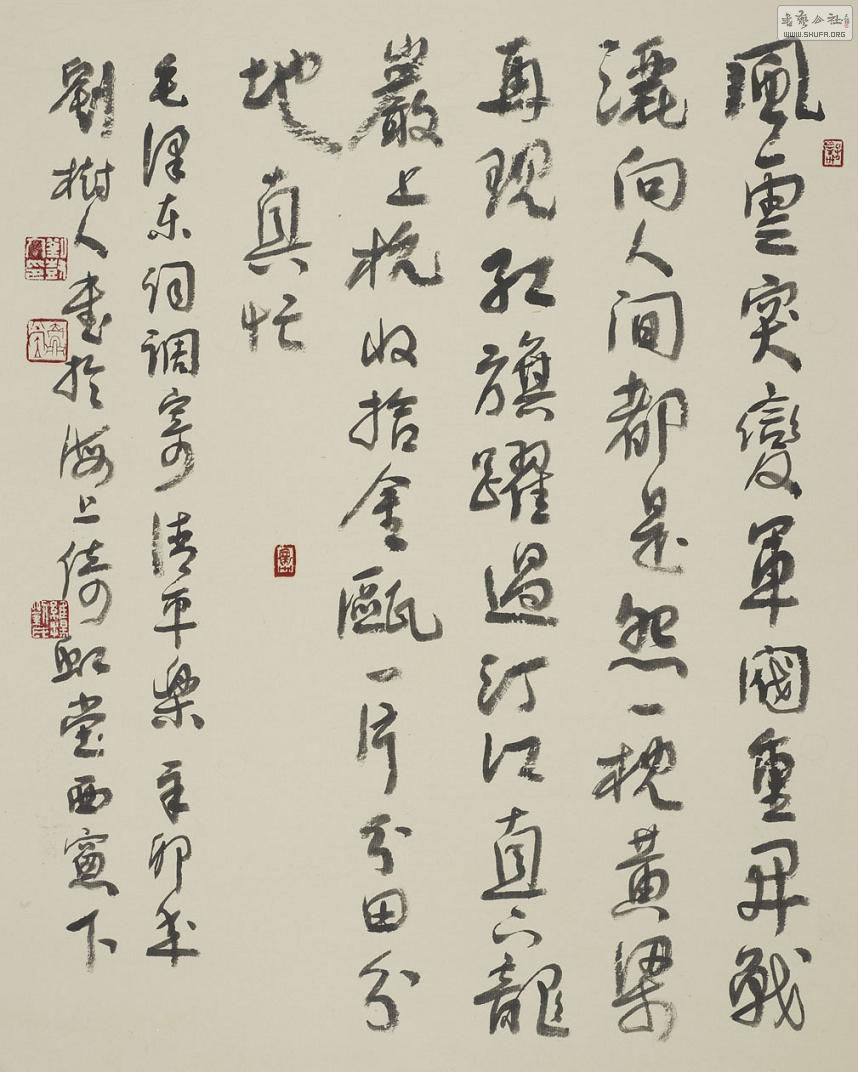 風雲突變軍閥重開戰
灑向人間都是怨一枕黃粱
再現紅旗躍過汀江直下龍
巖上杭收拾金甌一片分田分
地真忙
毛澤東詞調寄清平樂 辛卯
劉樹人書於海上倚虹堂西窗下
WWW.SHUFA.ORG